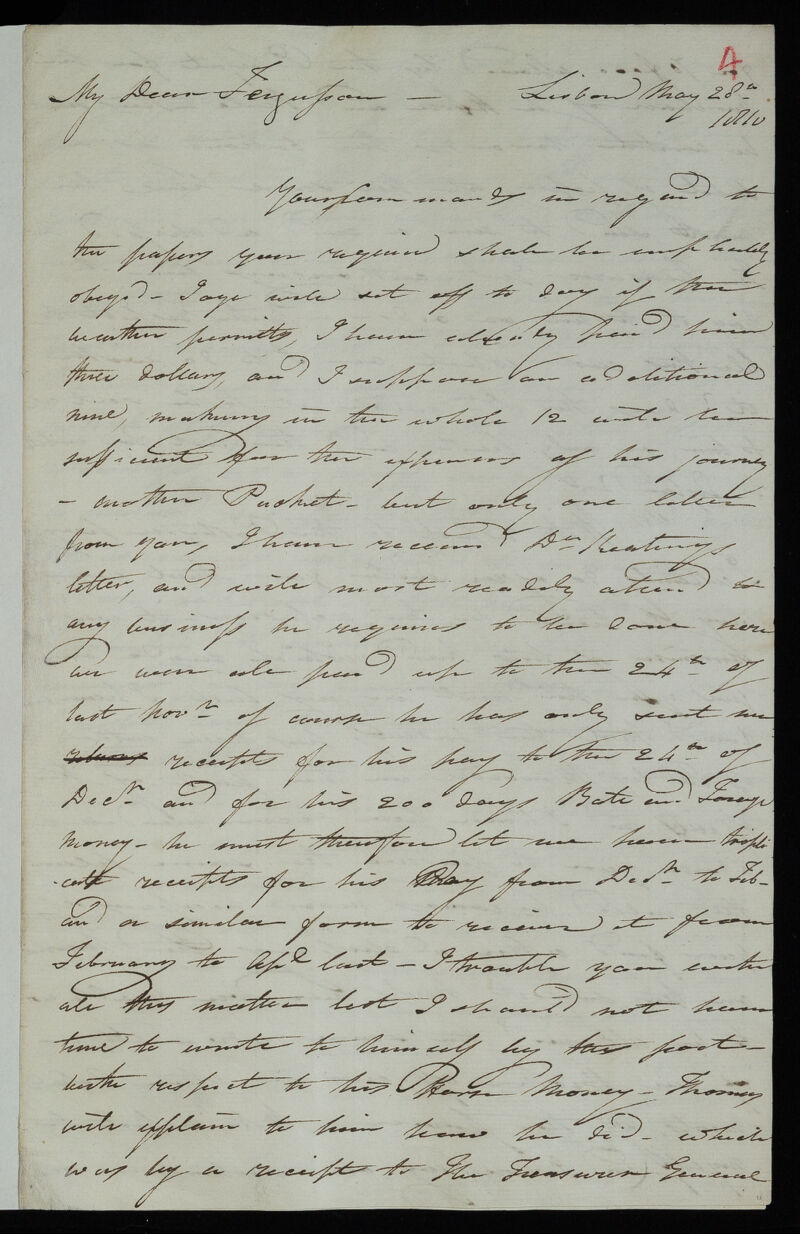 4
My Dear Fergusson — Lisbon May 28th
1810
Your Commands in regard to
the papers you required shall be implicitly
obeyd – Jago will set off to day if the
weather permitts, I have already paid him
three dollars, and I suppose an additional
nine, making in the whole 12 will be
sufficient for the expences of his journey
– another Packet – but only one letter
from you, I have received Dr Keatings
letter, and will most readily attend to
any business he requires to be done here
we were all paid up to the 24th of
last Novr of course he has only sent me
receipts for his pay to the 24th of
Decr and for his 200 days Bat and Forage
money – he must therefore let me have tripli
-cate receipts for his Pay from Decr to Feb–
and a similar form to receive it from
February to Apl last – I trouble you with
all this matter lest I should not have
time to write to himself by this post –
with respect to his Horse Money – Thomas
will explain to him how he did – which
was by a receipt to the Treasurer General